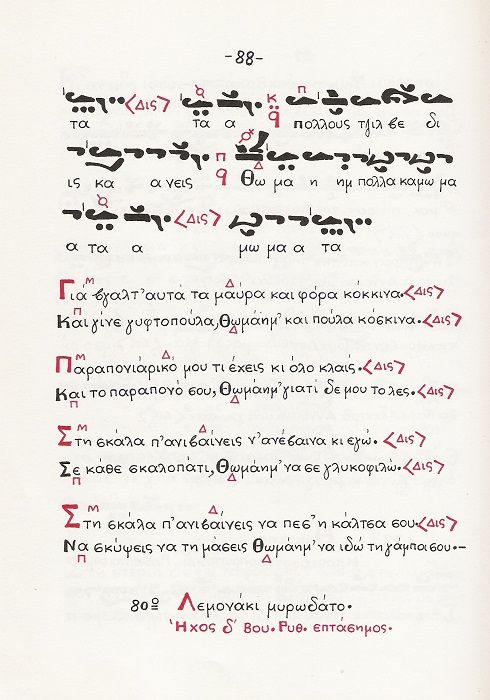 -88-
<Δις> κ π
τα τα α πολλους τζιλ βε δι
π
ις κα α νεις Θω μα η ημ πολλα κα μω μα
<Δις>
α τα α μω μα α τα
Γιά βγαλτ'αυτά τα μαύρα και φόρα κόκκινα.<Δις>
Και γίνε γυφτοπούλα, Θωμάημ' και πούλα κόσκινα.<Δις>
Παραπονιάρικό μου τι έχεις κι όλο κλαις.<Δις>
Και το παραπονό σου, Θωμάημ' γιατί δε μου το λες.<Δις>
Στη σκάλα π'ανιβαίνεις ν'ανέβαινα κι εγώ.<Δις>
Σε κάθε σκαλοπάτι, Θωμάημ' να σε γλυκοφιλώ.<Δις>
Στη σκάλα π'ανιβαίνεις να πεσ'η κάλτσα σου.<Δις>
Να σκύψεις να τη μάσεις Θωμάημ' να ιδώ τη γάμπα σου.-
80º Λεμονάκι μυρωδάτο.
Ήχος δ' Βου. Ρυθ. επτάσημος.